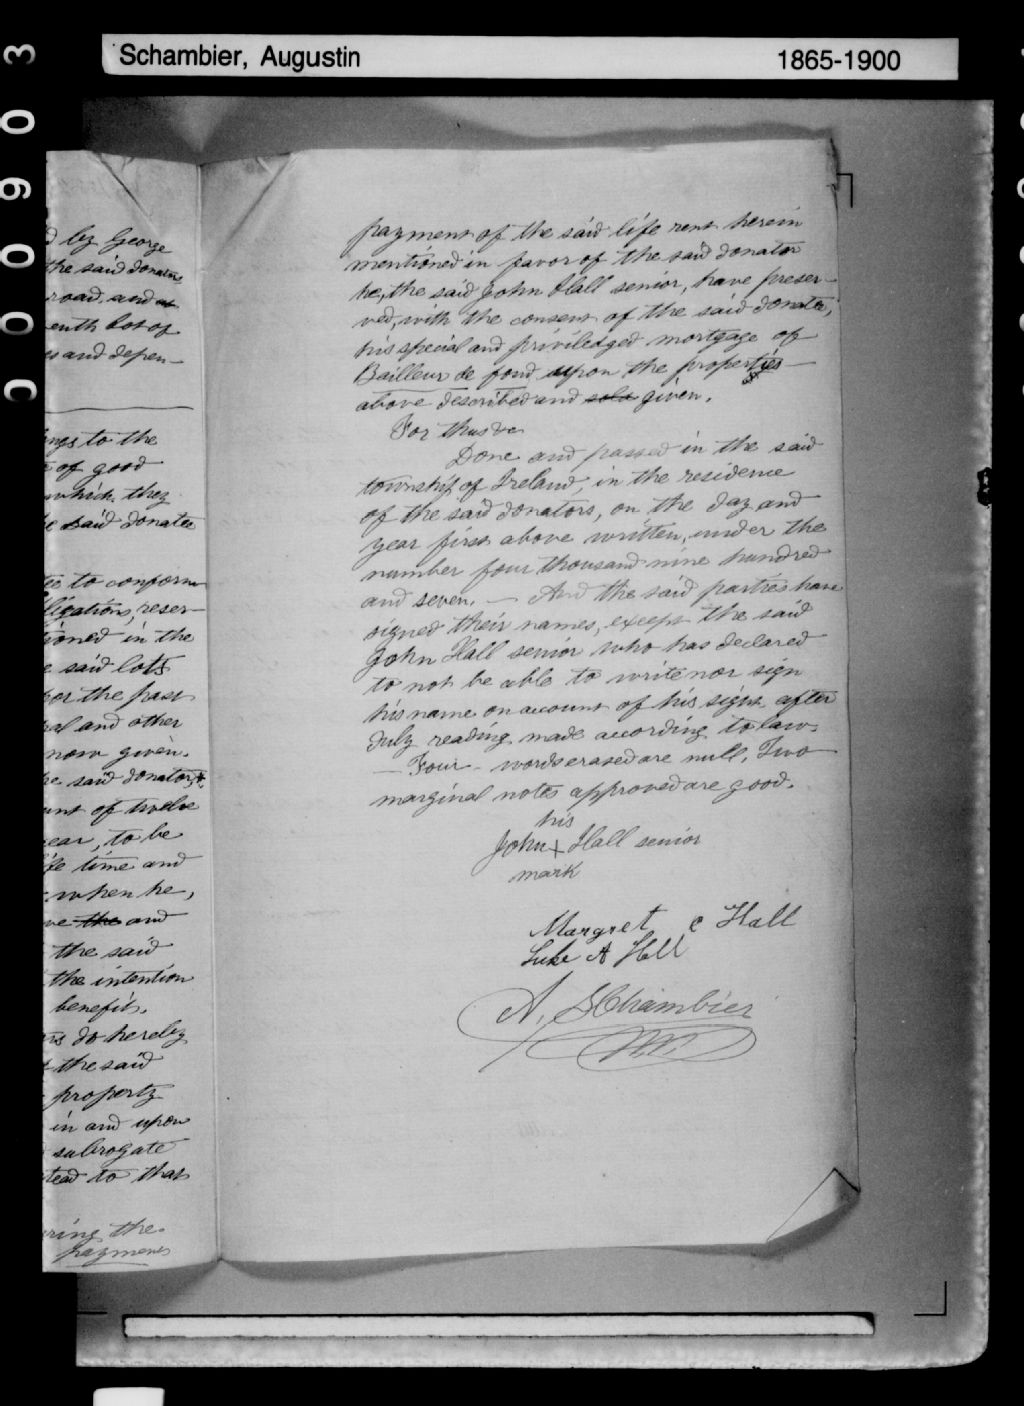 Schambier, Augustin
1865-1900
000903
by George
the said donator
road, and
enth lot of
es and depen-
ngs to the
of good
which they
he said donatee
to conform
ligations, reser-
tioned in the
e said lots
for the past
al and other
now given.
he said donator,
unt of twelve
year, to be
ife time and
when he,
ve the and
the said
the intention
benefit.
rs do hereby
the said
property
in and upon
subrogate
stead to that
ring the
payment
payment of the said life rent herein
mentioned in favor of the said donator
he, the said John Hall senior, have preser-
ved, with the consent of the said donatee,
his special and priviledged mortgage of
Bailleur de fond upon the properties
above described and sold given.
For thus &c
Done and passed in the said
township of Ireland, in the residence
of the said donators, on the day and
year first above written, under the
number four thousand nine hundred
and seven. — And the said parties have
signed their names, except the said
John Hall senior who has declared
to not be able to write nor sign
his name on account of his sight after
duly reading made according to law.
— Four - words erased are null. Two
marginal notes approved are good.
his
John + Hall senior
mark
Margret C Hall
Luke A Hall
A. SChambier
N.P.